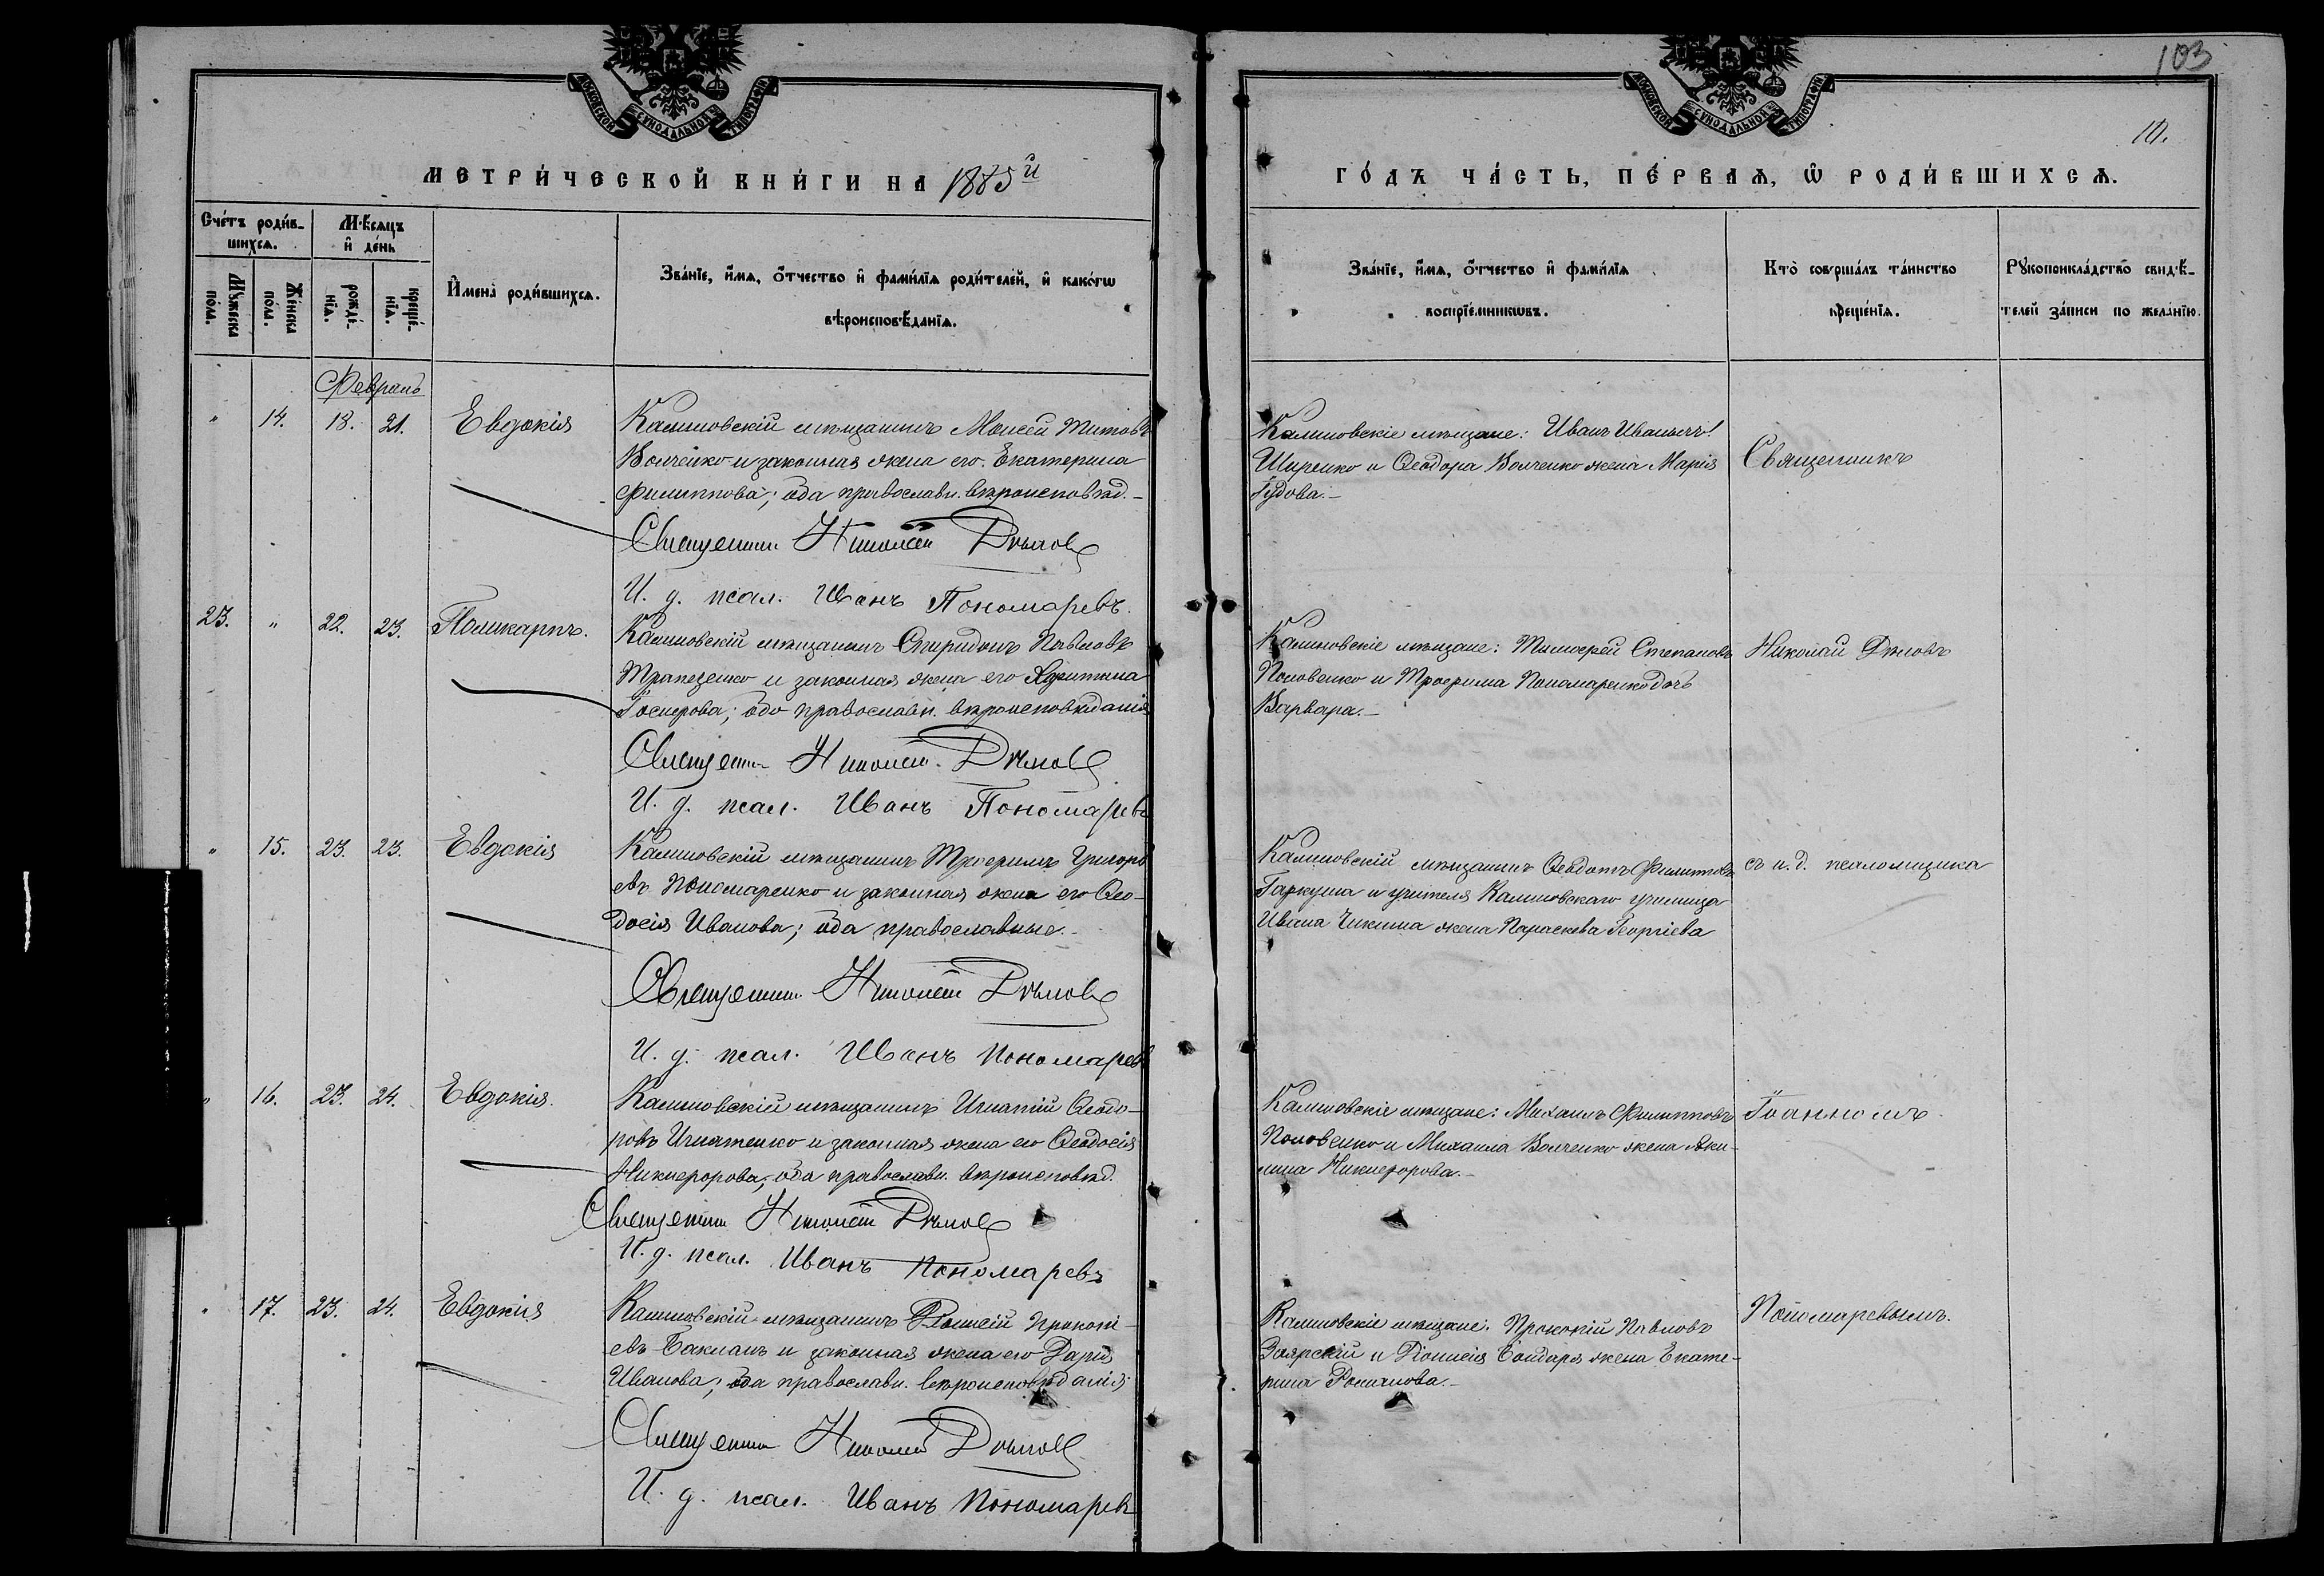 103
10.
МОСКОВСКОЙ СУНОДАЛЬНОЙ ТИПОГРАФІИ
МОСКОВСКОЙ СУНОДАЛЬНОЙ ТИПОГРАФІИ
МЕТРИ́ЧЕСКОЙ КНИ́ГИ НА 1885й
ГО́ДЪ ЧА́СТЬ, ПЕ́РВАѦ, Ѡ РОДИ́ВШИХСѦ.
Сче́тъ роди́в-
шихсѧ.
Мꙋ́жеска по́ла.
Же́нска по́ла.
Мѣ́сѧцъ и де́нь
рожде́-нїѧ.
креще́-нїѧ.
Имена̀ роди́вшихсѧ.
Зва́нїе, и́мѧ, о́тчество и фами́лїѧ роди́телей, и како́гѡ
вѣроисповѣ́данїѧ.
Зва́нїе, и́мѧ, о́тчество и фами́лїѧ
воспрїе́мникѡвъ.
Кто̀ соверша́лъ та́инство
креще́нїѧ.
Рꙋкоприкла́дство свидѣ́-
телей за́писи по жела́нїю.
Февраль
" 14. 18. 21. Евдокія
Калиновскій мѣщанинъ Моисей Титовъ
Волченко и законная жена его Екатерина
Филиппова; оба православн. вѣроисповѣд.-
Священникъ Николай Дѣловъ
И. д. псал. Иванъ Пономаревъ.
Калиновскіе мѣщане: Иванъ Ивановъ
Ширенко и Ѳеодора Волченко жена Марія
Гудова.-
Священникъ
23. " 22. 23. Поликарпъ.
Калиновскій мѣщанинъ Спиридонъ Павловъ
Трапезенко и законная жена его Харитина
Іосифова; обо православн. вѣроисповѣданія
Священникъ Николай Дѣловъ
И. д. псал. Иванъ Пономаревъ
Калиновскіе мѣщане: Тимофей Степановъ
Половенко и Трофима Пономаренко дочь
Варвара.-
Николай Дѣловъ
" 15. 23. 23. Евдокія
Калиновскій мѣщанинъ Трофимъ Григорь
евъ Пономаренко и законная жена его Ѳео-
досія Иванова; оба православные.-
Священникъ Николай Дѣловъ
И. д. псал. Иванъ Пономаревъ
Калиновскій мѣщанинъ Ѳеодотъ Филипповъ
Гаркуша и учителя Калиновскаго училища
Ивана Чикина жена Параскева Георгіева
съ и. д. псаломщика
" 16. 23. 24. Евдокія.
Калиновскій мѣщанинъ Игнатій Ѳеодо-
ровъ Игнатенко и законная жена его Ѳеодосія
Никифорова; оба православн. вѣроисповѣд.
Священникъ Николай Дѣловъ
И. д. псал. Иванъ Пономаревъ
Калиновскіе мѣщане: Михаилъ Филипповъ
Половенко и Михаила Волченко жена Аки-
лина Никифорова.-
Іоанномъ
" 17. 23. 24. Евдокія
Калиновскій мѣщанинъ Діонисій Прокопі-
евъ Бакланъ и законная жена его Дарія
Иванова; оба православн. вѣроисповѣданія
Священникъ Николай Дѣловъ
И. д. псал. Иванъ Пономарев
Калиновскіе мѣщане: Прокопій Павловъ
Заярскій и Діонисія Бондаря жена Екате-
рина Романова.-
Пономаревымъ.